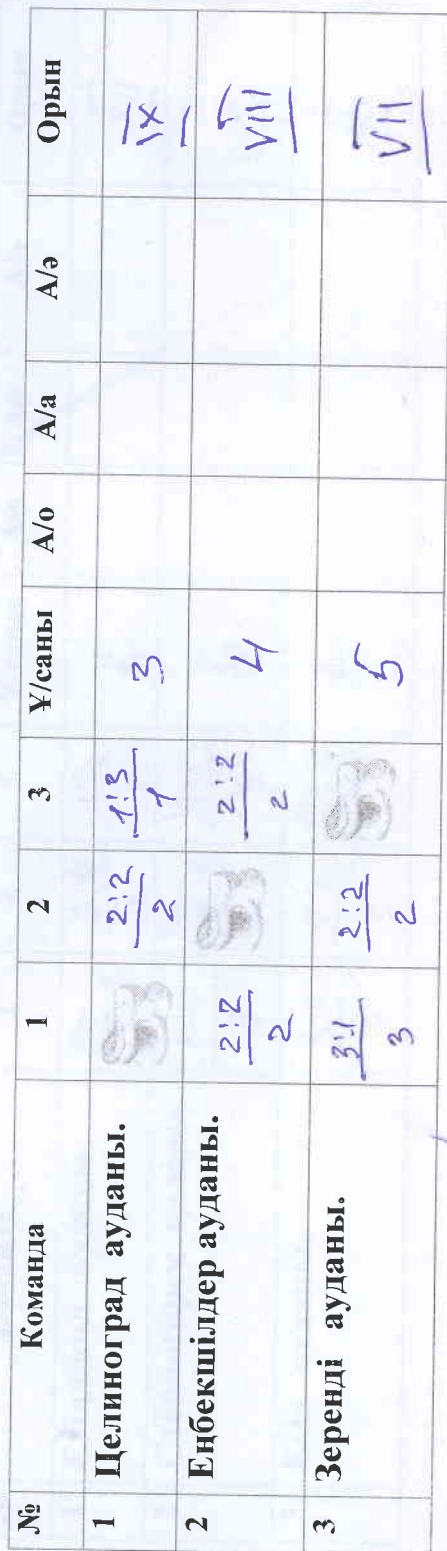 № Команда 1 2 3 Ұ/саны А/о А/а А/ә Орын
1 Целиноград ауданы. 2:2 1:3 3 IX
2 1
2 Еңбекшілдер ауданы. 2:2 2:2 4 VIII
2 2
3 Зеренді ауданы. 3:1 2:2 5 VII
3 2